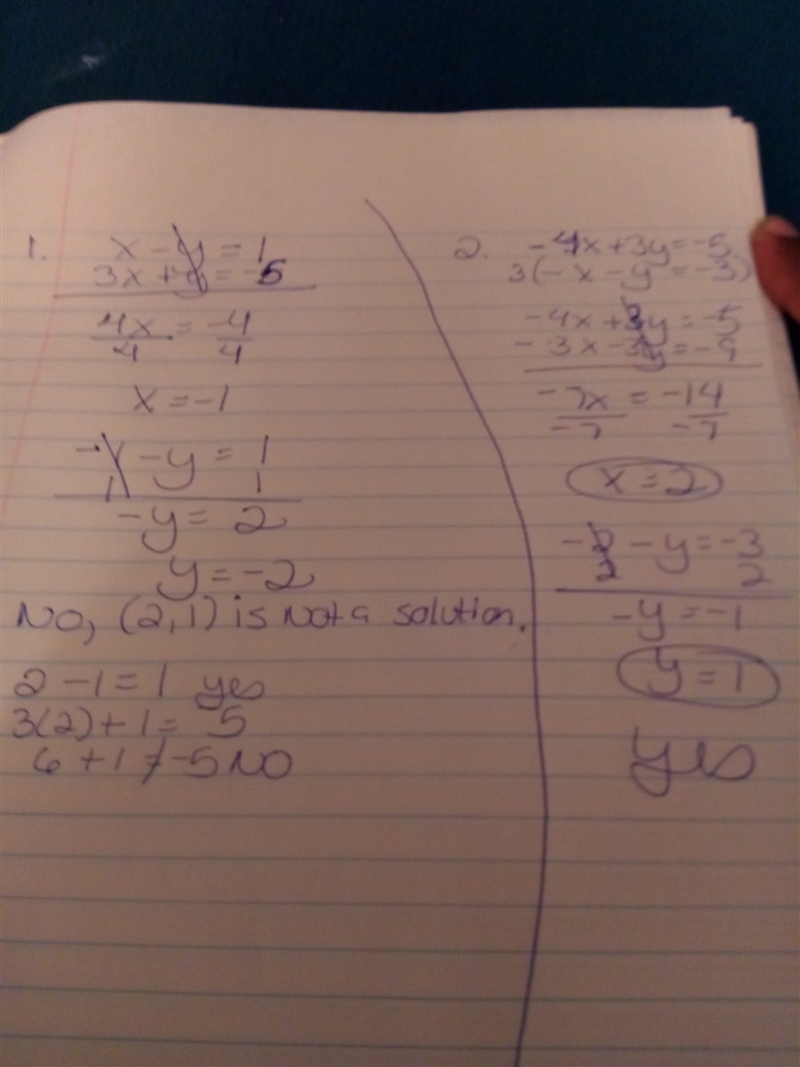 1.
x - y = 1
3x + y = -5
4x = -4
4 4
x = -1
-1 - y = 1
1 1
-y = 2
y = -2
No, (2,1) is Not a solution.
2 - 1 = 1 yes
3(2) + 1 = 5
6 + 1 ≠ -5 NO
2.
-4x + 3y = -5
3(-x - y = -3)
-4x + 3y = -5
-3x - 3y = -9
-7x = -14
-7 -7
x = 2
-2 - y = -3
2 2
-y = -1
y = 1
yes